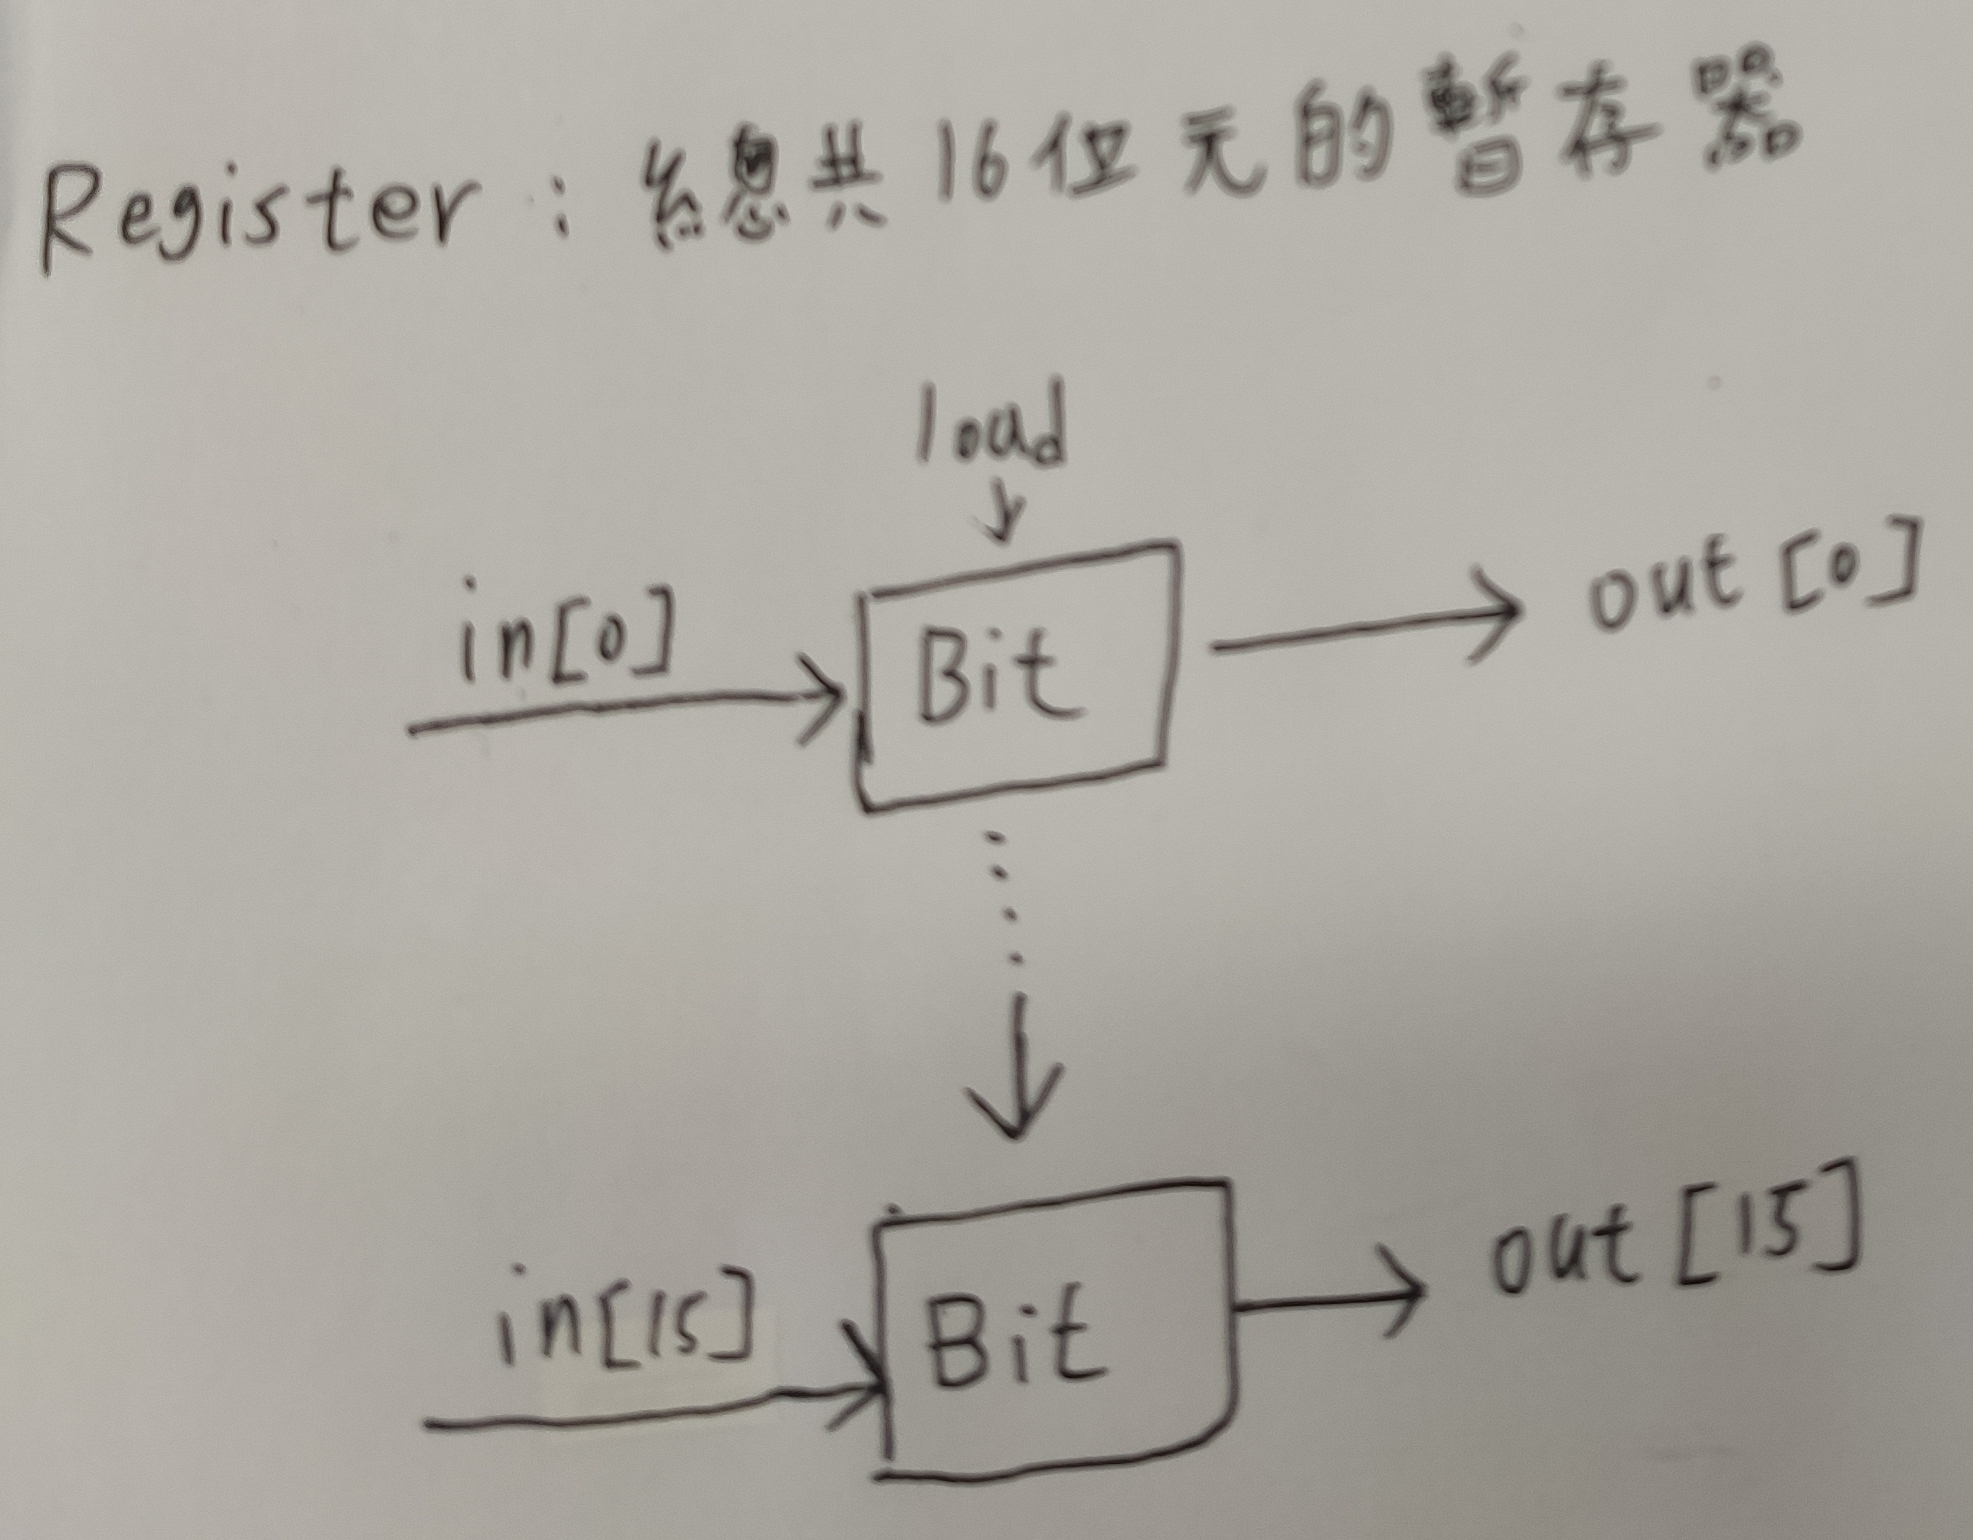 Register : 總共16位元的暫存器
load
in[0]
Bit
out [0]
in[15]
Bit
out [15]